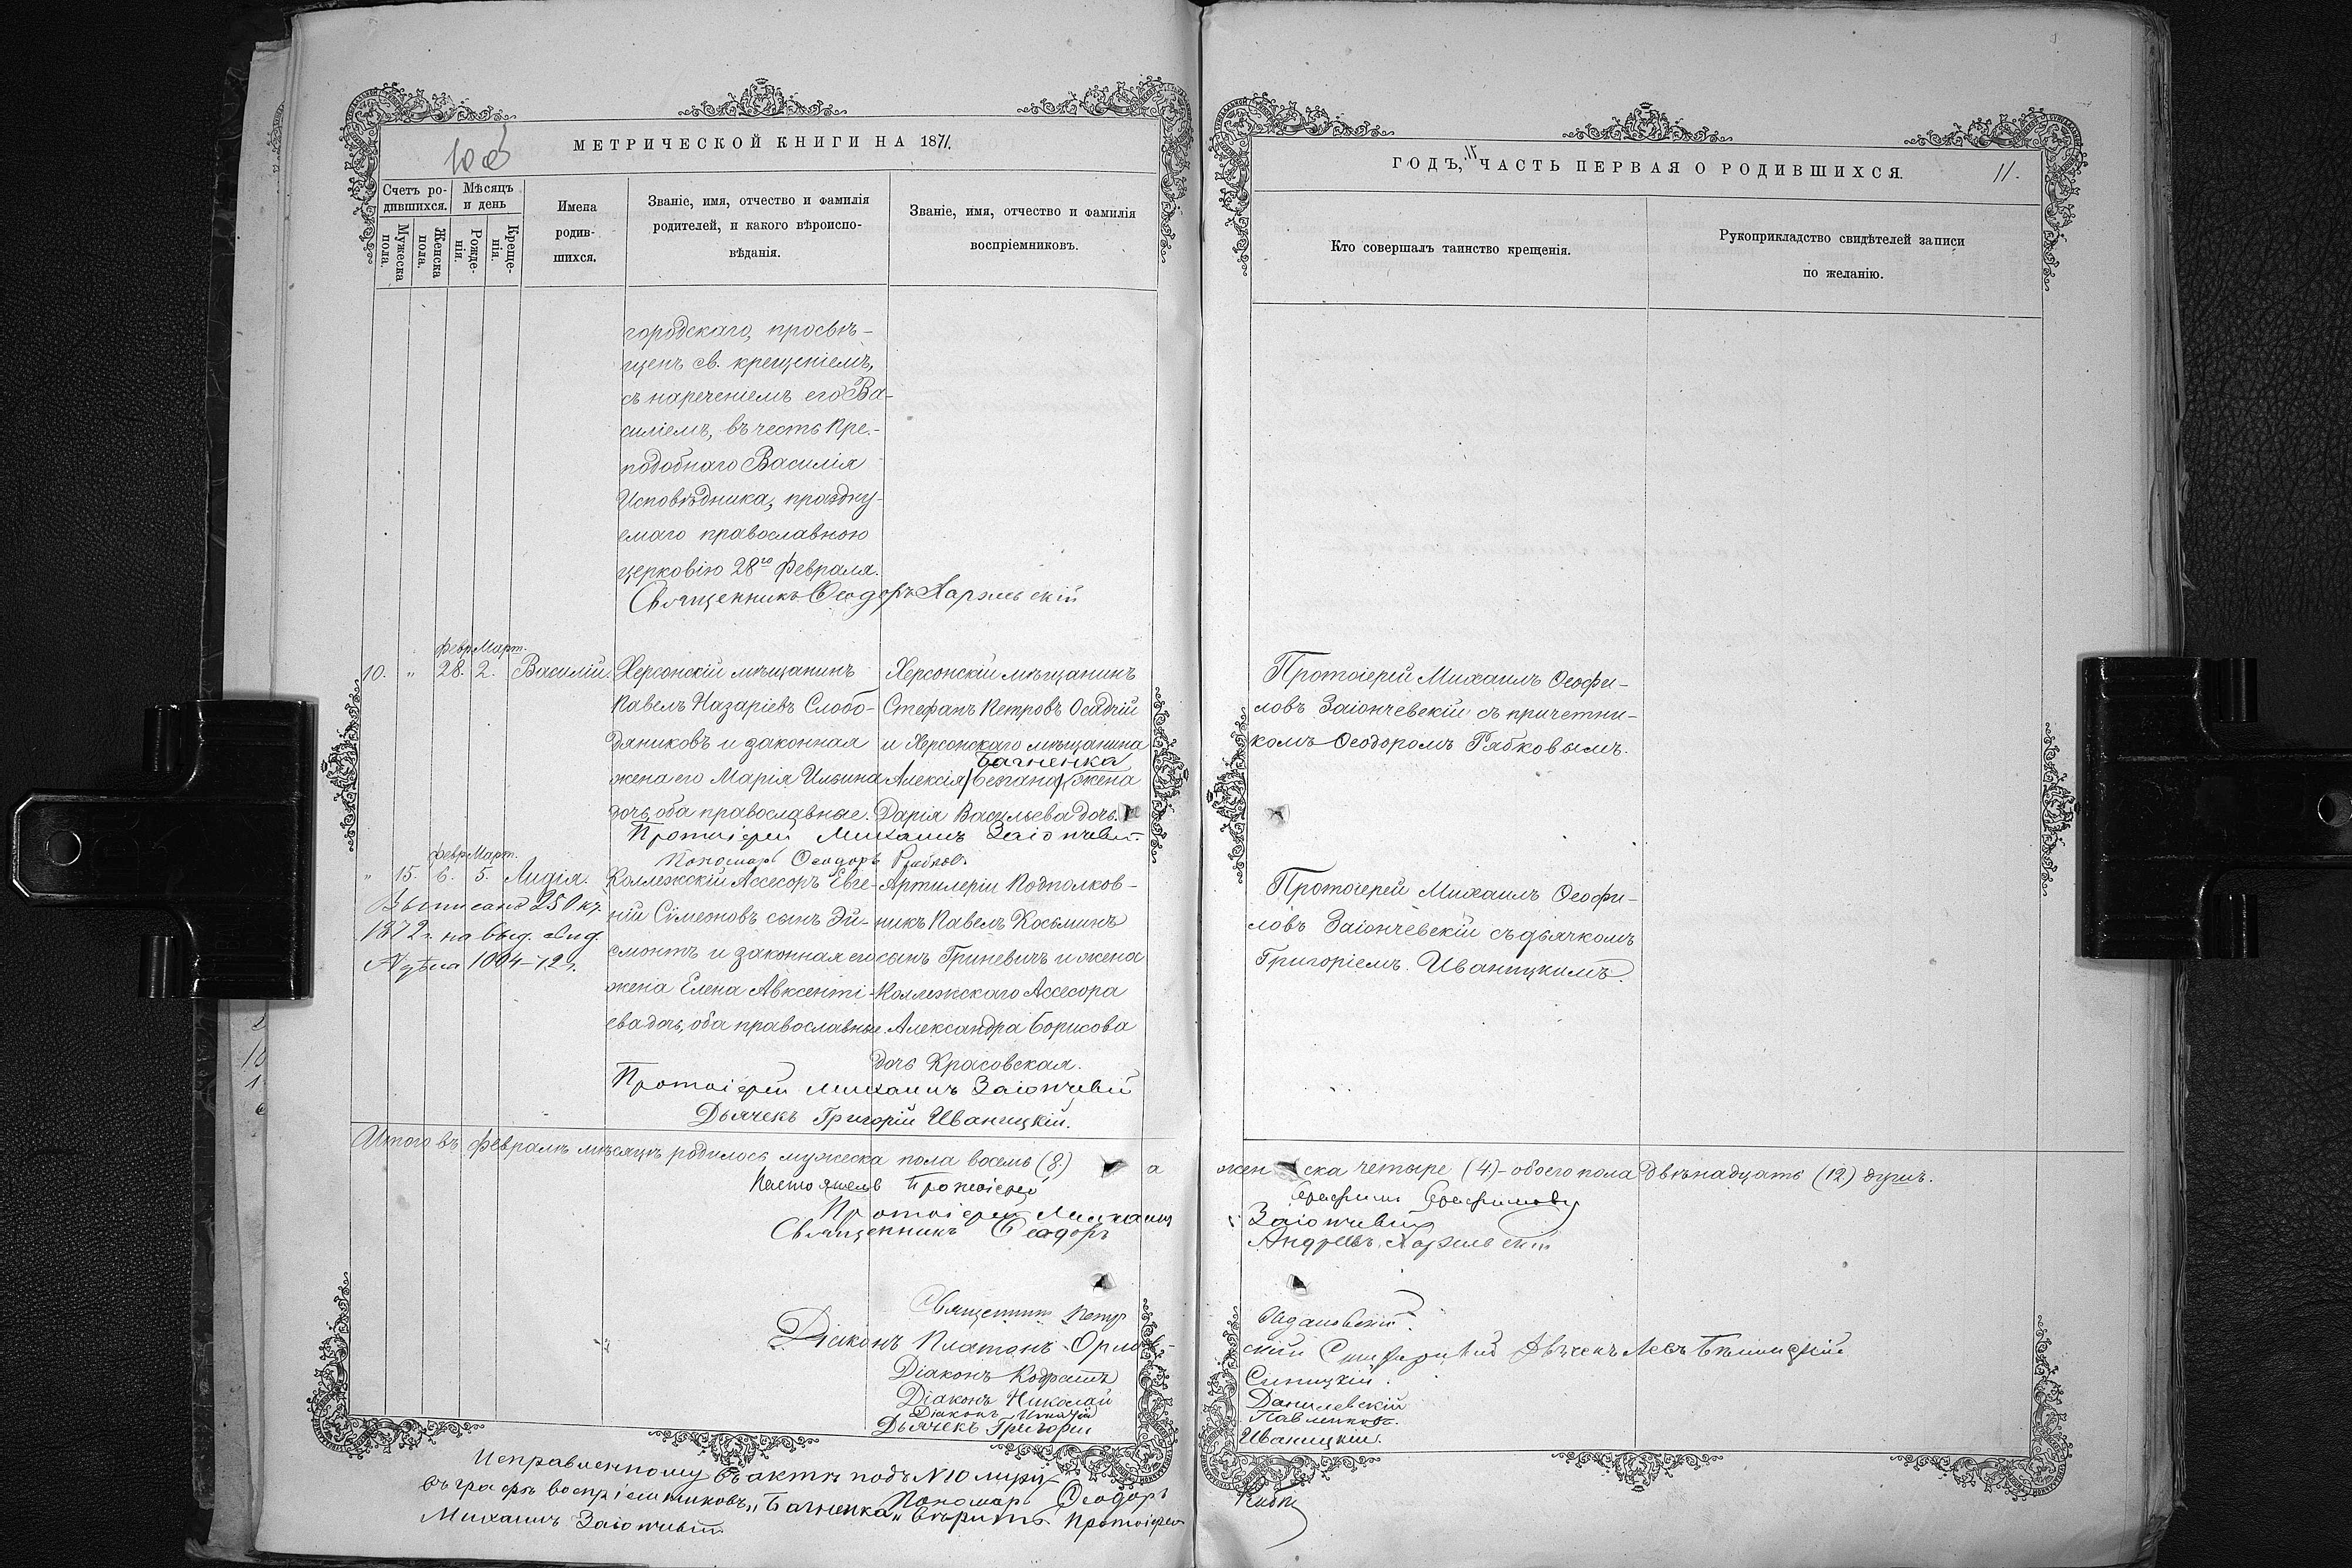 МЕТРИЧЕСКОЙ КНИГИ НА 1871.
10 об
Счетъ родившихся.
Мѣсяцъ и день
Мужеска пола.
Женска пола.
Рожденія.
Крещенія.
Имена родившихся.
Званіе, имя, отчество и фамилія
родителей, и какого вѣроиспо-
вѣданія.
Званіе, имя, отчество и фамилія
воспріемниковъ.
городскаго, просвѣ-
щенъ св. крещеніемъ,
съ нареченіемъ его Ва-
силіемъ, въ честь Пре-
подобнаго Василія
Исповѣдника, праздну-
емаго православною
церковію 28го Февраля.
Священникъ Ѳеодоръ
Февр. Март.
10. " 28. 2. Василій.
Херсонскій мѣщанинъ
Павелъ Назаріевъ Слобо-
дяниковъ и законная
жена его Марія Ильина
дочь, оба православные.
Херсонскій мѣщанинъ
Стефанъ Петровъ Осадчій
и Херсонскаго мѣщанина
Багненка
Алексія жена
Дарія Васильева дочь.
Протоіерей Михаилъ Заіончевскій
Пономарь Ѳеодоръ Рябковъ
Февр. Март.
" 15. 6. 5. Лидія.
Выписано 250 кр.
1872 г. на выд. свид.
1004-72 г.
Коллежскій Ассесоръ Евге-
ній Сімеоновъ сынъ Эй-
смонтъ и законная его
жена Елена Авксенті-
ева дочь, оба православные
Артилеріи Подполков-
никъ Павелъ Косьминъ
сынъ Гриневичъ и жена
Коллежскаго Ассесора
Александра Борисова
дочь Красовская.
Протоіерей Михаилъ Заіончевскій
Дьячекъ Григорій Иваницкій.
Итого въ Февралѣ мѣсяцѣ родилось мужеска пола восемь (8.) а
Настоятель Протоіерей
Протоіерей Михаилъ
Священникъ Ѳеодоръ
Священникъ Петръ
Діаконъ Платонъ Орлов-
Діаконъ Кодратъ
Діаконъ Николай
Діаконъ
Дьячекъ Григорій
Исправленному въ актѣ подъ N 10
въ графѣ воспріемниковъ "Багненка" вѣрить. Протоіерей
Михаилъ Заіончевскій
Пономарь Ѳеодоръ
ГОДЪ, ЧАСТЬ ПЕРВАЯ О РОДИВШИХСЯ.
11.
Кто совершалъ таинство крещенія.
Рукоприкладство свидѣтелей записи
по желанію.
Протоіерей Михаилъ Ѳеофи-
ловъ Заіончевскій съ причетни-
комъ Ѳеодоромъ Рябковымъ.
Протоіерей Михаилъ Ѳеофи-
ловъ Заіончевскій съ дьячкомъ
Григоріемъ Иваницкимъ.
женска четыре (4.) - обоего пола двѣнадцать (12) душъ.
Заіончевскій
Андреевъ
скій Дьячекъ Левъ
Синицкій.
Данилевскій
Павленковъ.
Иваницкій.